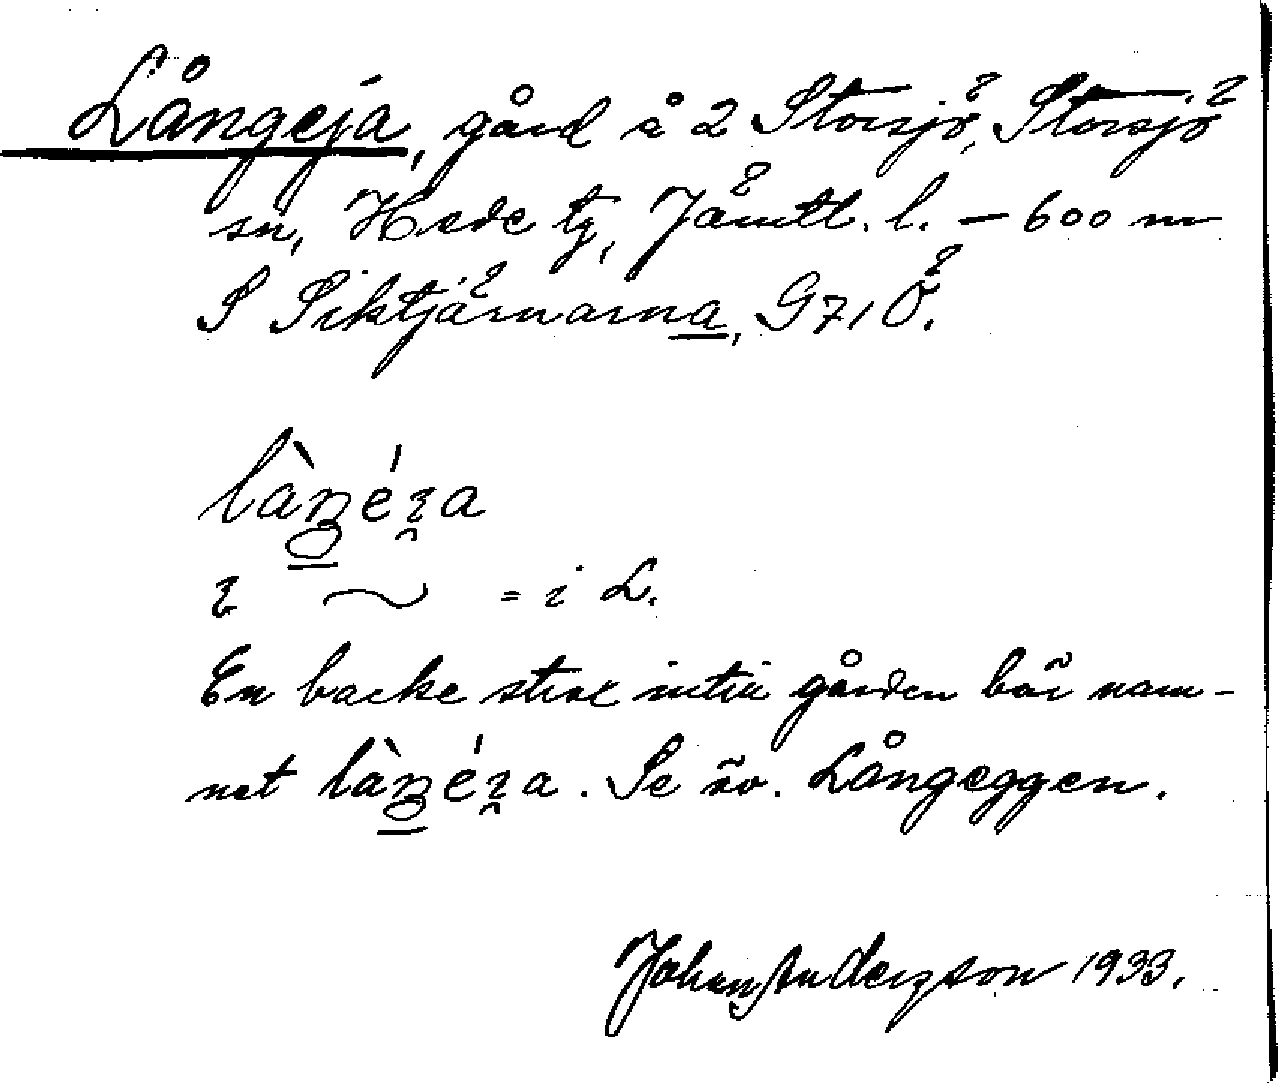 Långeja, gård å 2 Storsjö, Storsjö
sn, Hede tg, Jämtl. l. – 600 m
S Siktjärnarna, G71Ö.
ɿ ~ = i L.
En backe strax intill gården bär nam-
net . Se äv. Långeggen.
Johan Anderzson 1933.